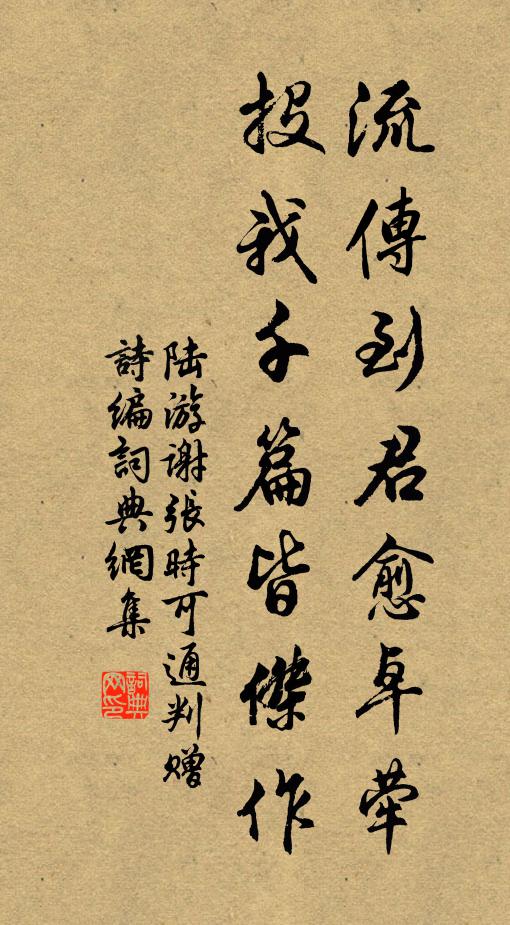 流傳到君愈卓犖
投我千篇皆傑作
陆游谢張時可通判赠
詩编詞典網集
詞典
网印